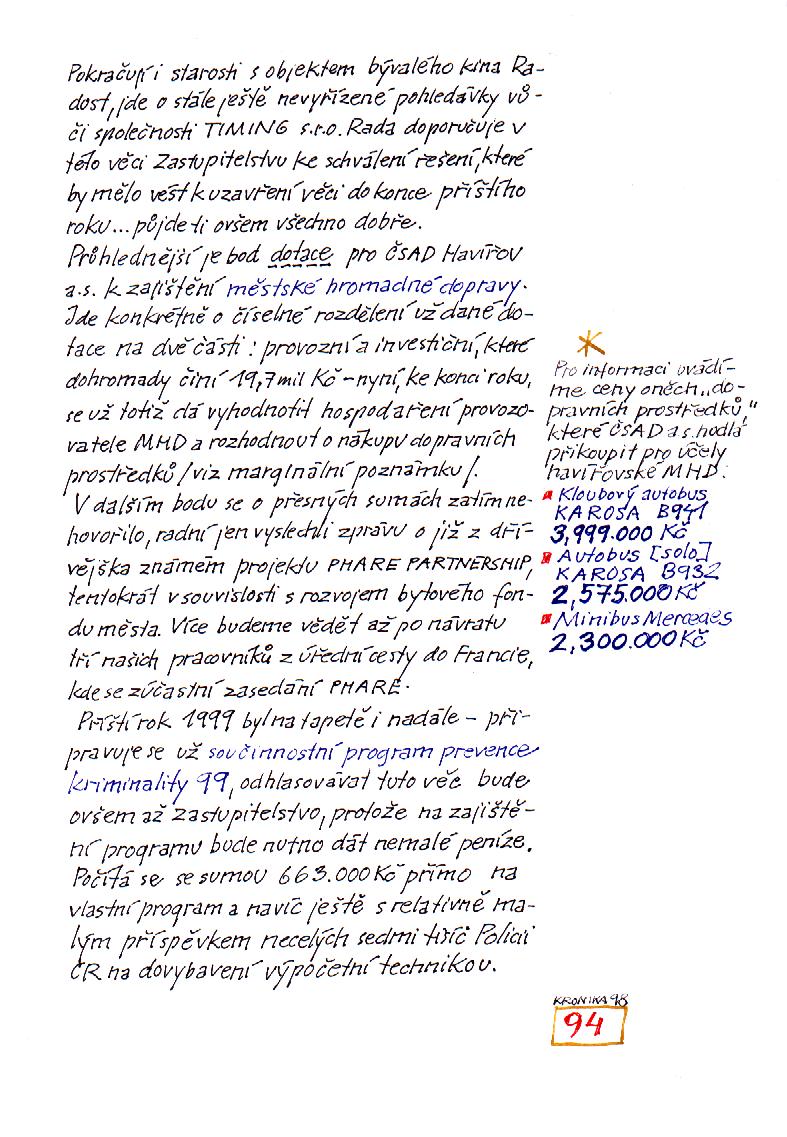 Pokračují i starosti s objektem bývalého kina Ra-
dost, jde o stále ještě nevyřízené pohledávky vů-
či společnosti TIMING s.r.o. Rada doporučuje v
této věci Zastupitelstvu ke schválení řešení, které
by mělo vést k uzavření věci do konce příštího
roku... půjde-li ovšem všechno dobře.
Průhlednější je bod dotace pro ČSAD Havířov
a.s. k zajištění městské hromadné dopravy.
Jde konkrétně o číselné rozdělení už dané do-
tace na dvě části: provozní a investiční, které
dohromady činí 19,7 mil Kč - nyní, ke konci roku,
se už totiž dá vyhodnotit hospodaření provozo-
vatele MHD a rozhodnout o nákupu dopravních
prostředků /viz marginální poznámku/.
V dalším bodu se o přesných sumách zatím ne-
hovořilo, radní jen vyslechli zprávu o již z dří-
vějška známém projektu PHARE PARTNERSHIP,
tentokrát v souvislosti s rozvojem bytového fon-
du města. Více budeme vědět až po návratu
tří našich pracovníků z úřední cesty do Francie,
kde se zúčastní zasedání PHARE.
Příští rok 1999 byl na tapetě i nadále - při-
pravuje se už součinnostní program prevence
kriminality 99, odhlasovávat tuto věc bude
ovšem až Zastupitelstvo, protože na zajiště-
ní programu bude nutno dát nemalé peníze.
Počítá se se sumou 663.000 Kč přímo na
vlastní program a navíc ještě s relativně ma-
lým příspěvkem necelých sedmi tisíc Policii
ČR na dovybavení výpočetní technikou.
*
Pro informaci uvádí-
me ceny oněch „do-
pravních prostředků,"
které ČSAD a.s. hodlá
přikoupit pro účely
havířovské MHD:
Kloubový autobus
KAROSA B941
3,999.000 Kč
Autobus [solo]
KAROSA B932
2,575.000 Kč
Minibus Mercedes
2,300.000 Kč
KRONIKA 98
94